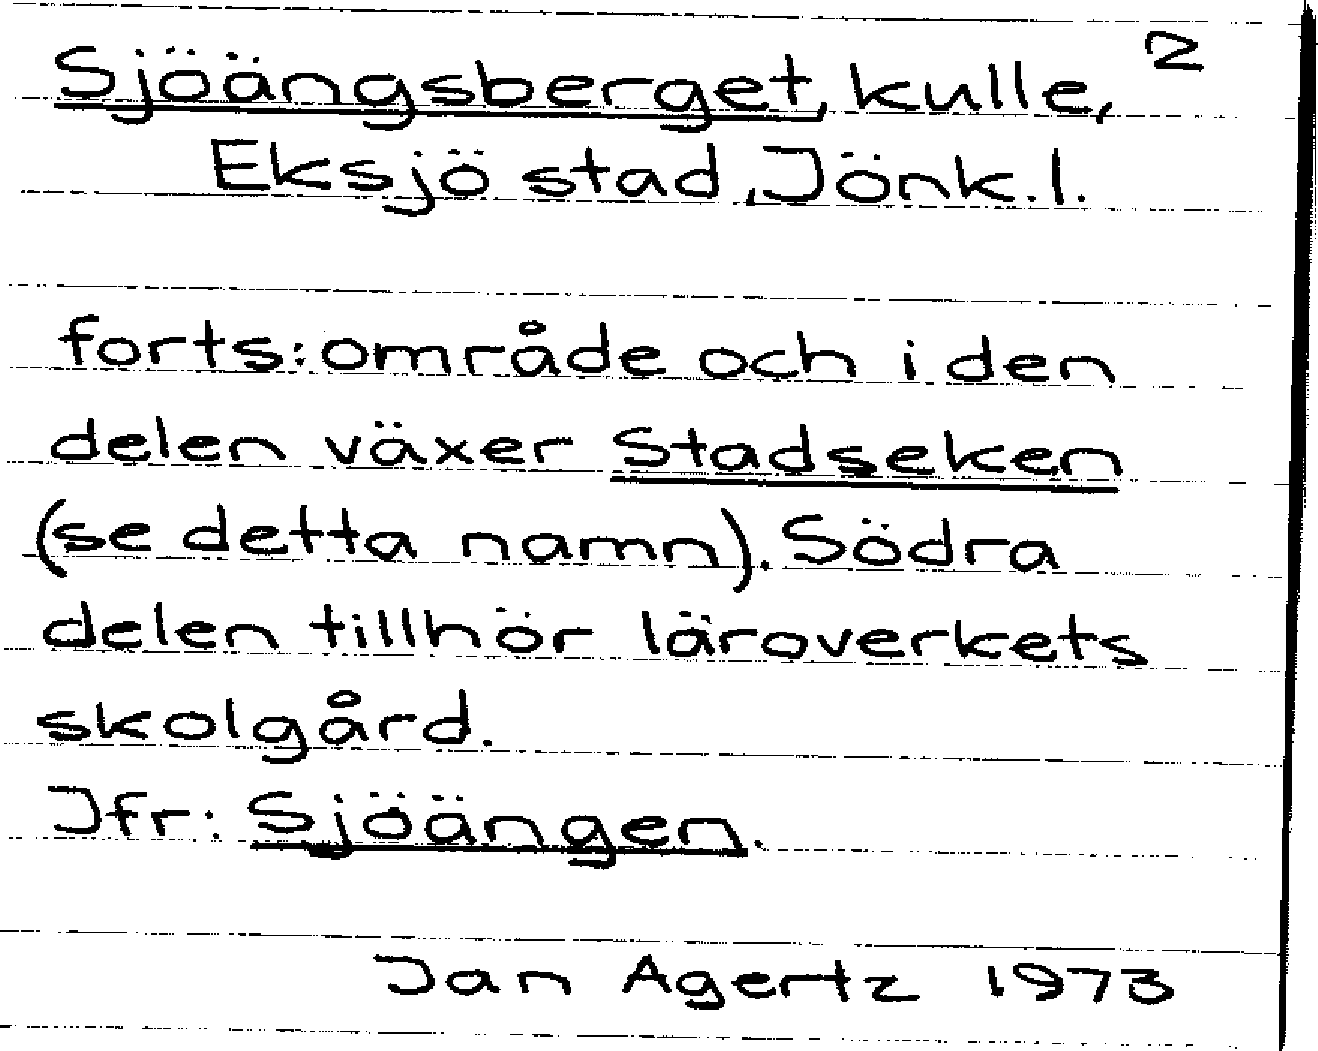 Sjöängsberget, kulle, 2
Eksjö stad, Jönk.l.
forts: område och i den
delen växer Stadseken
(se detta namn). Södra
delen tillhör läroverkets
skolgård.
Jfr: Sjöängen.
Jan Agertz 1973